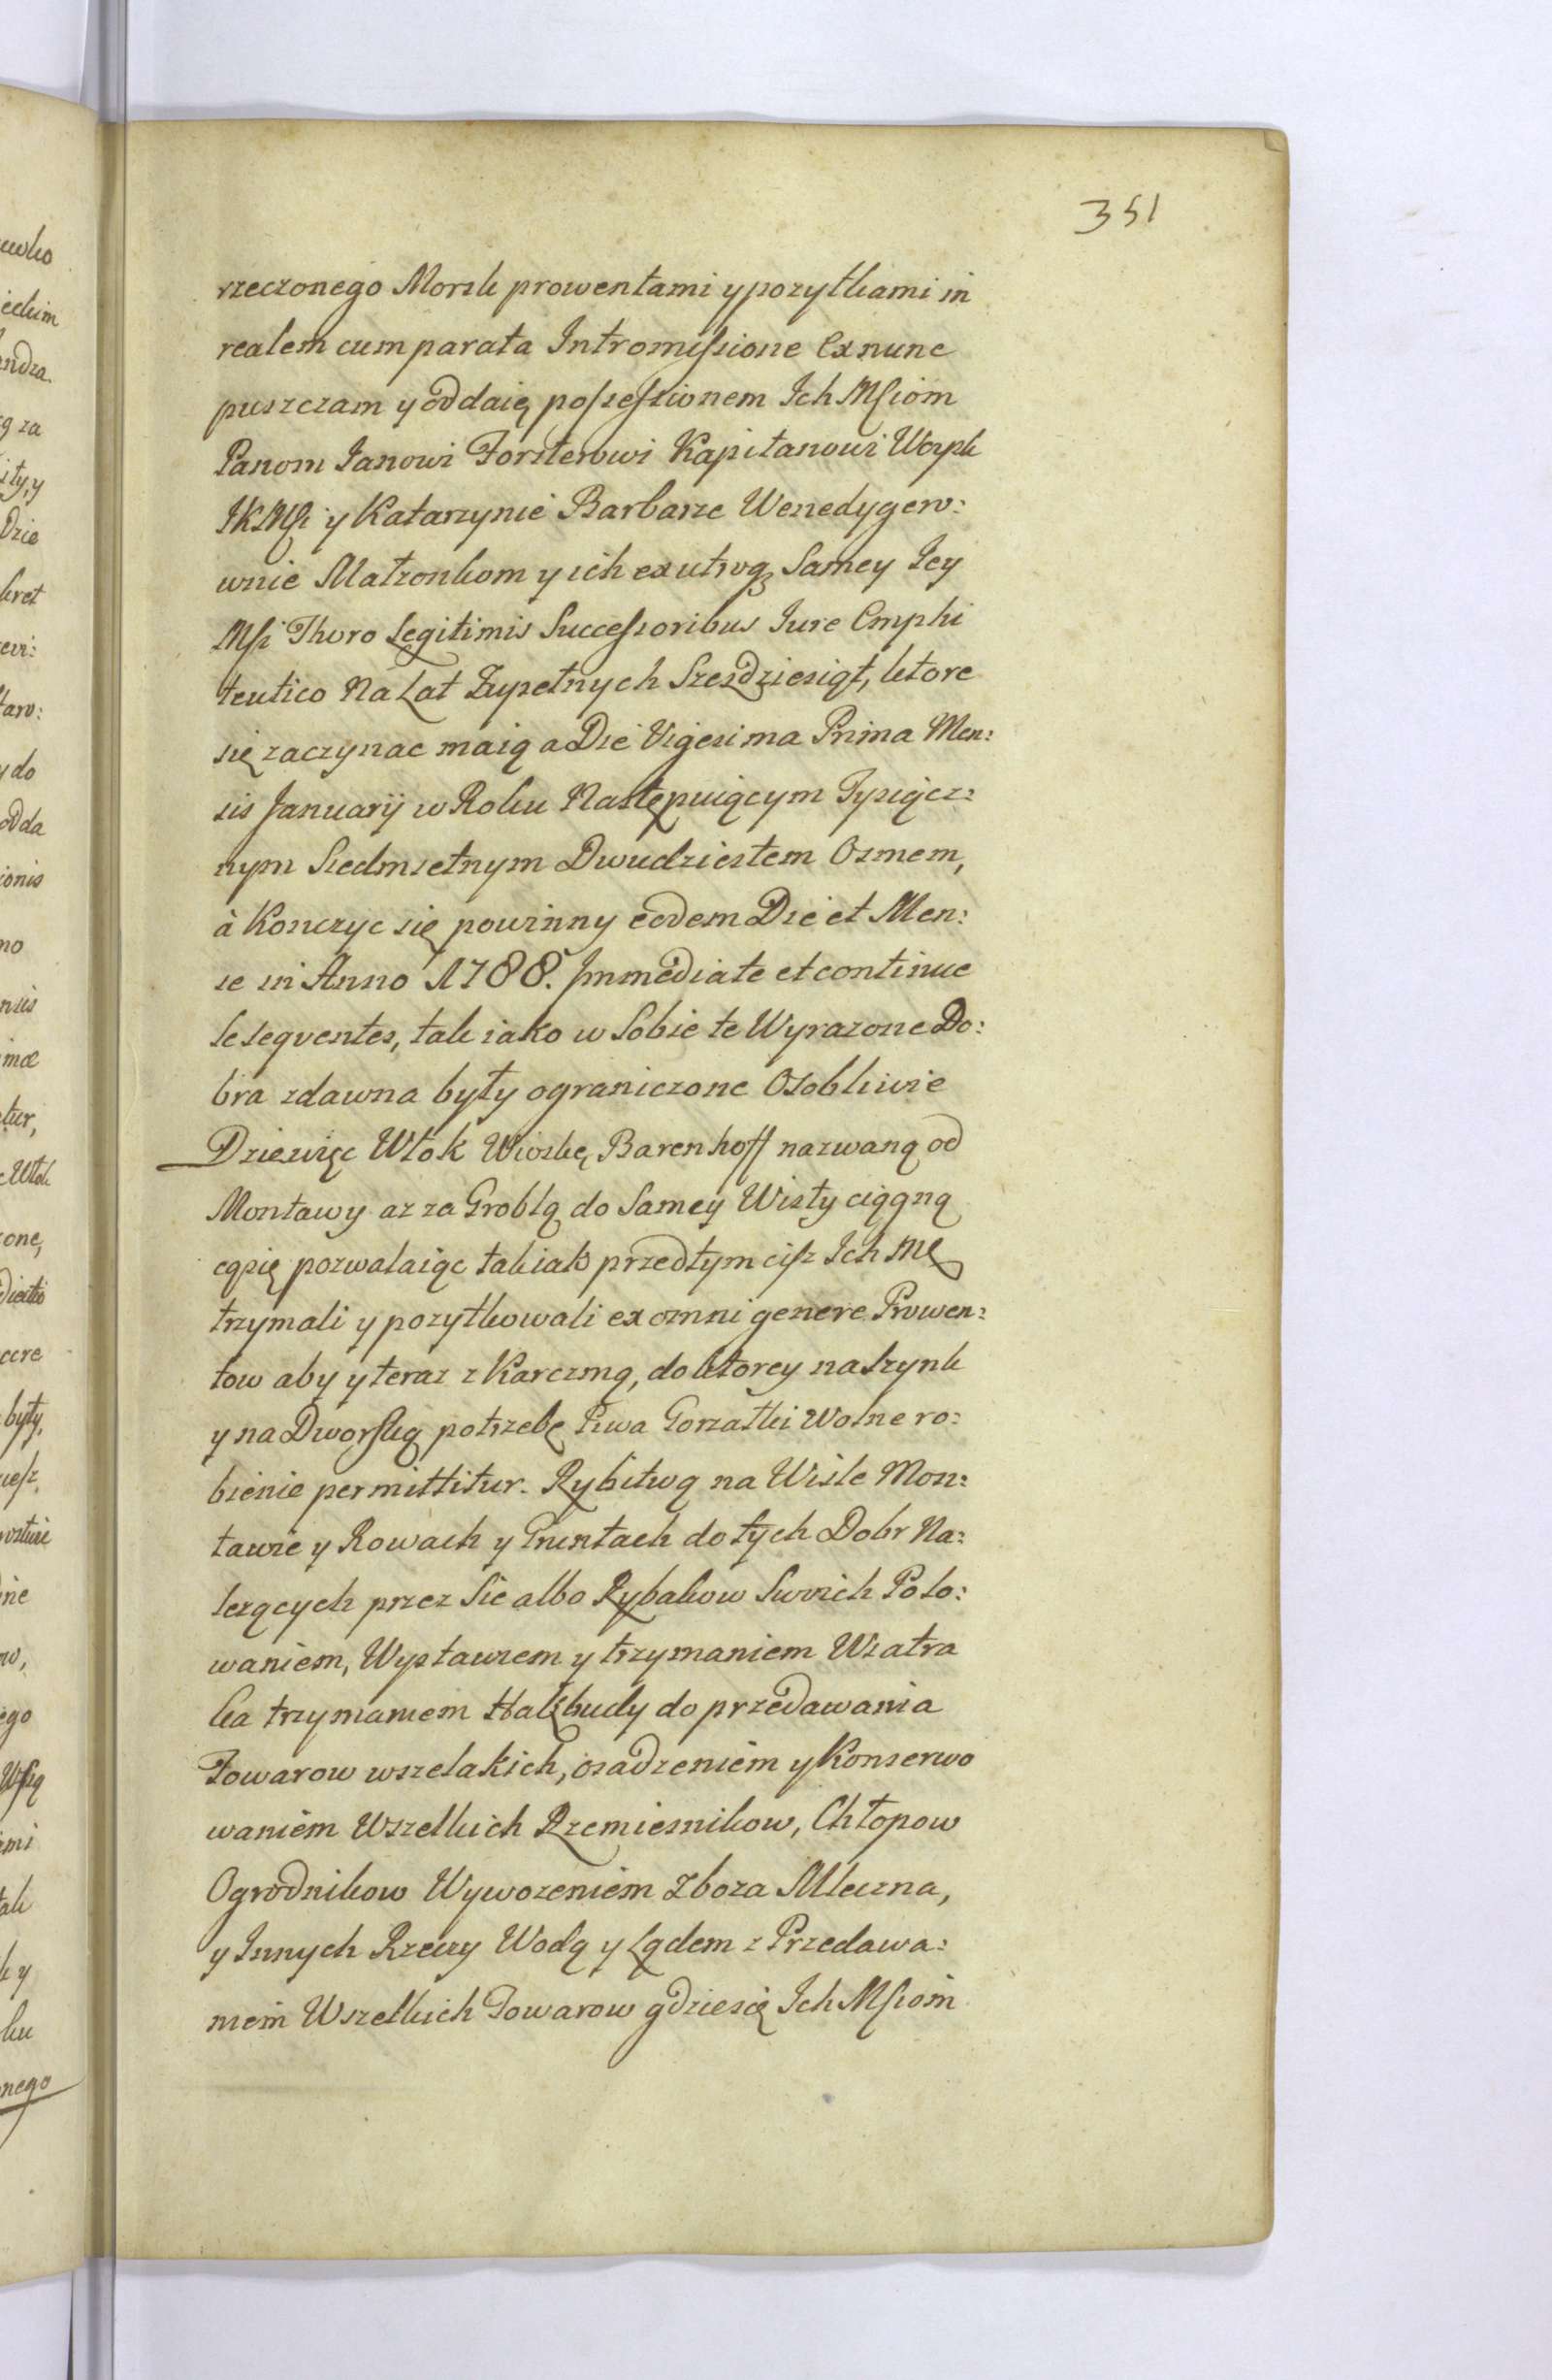 351
rzeczonego Morsk prowentami y pozytkami in
realem cum parata Intromissione Ex nunc
puszczam y oddaię possessionem Ich Msciom
Panom Janowi Forsterowi Kapitanowi Woysk
JKMsci y Katarzynie Barbarze Wenedygero:
wnie Małzonkom y ich ex utroq3 Samey Jey
Msci Thoro Legitimis Successoribus Jure Emphi
teutico Na Lat Zupełnych Szesdziesiąt, ktore
się zaczynac maią a Die Vigesima Prima Men:
sis Januarij w Roku Następuiącym Tysiącz:
nym Siedmsetnym Dwudziestem Osmem,
à Konczyc się powinny eodem Die et Men:
se in Anno 1788. Jmmediate et continue
se seqventes, tak iako w Sobie te Wyrazone Do:
bra zdawna były ograniczone Osobliwie
Dziewięc Włok Wioskę Barenhoff nazwaną od
Montawy az za Groblą do Samey Wisły ciągną
cąsię pozwalaiąc tak iak przedtym ciż Ich Mę
trzymali y pozytkowali ex omni genere Prowen:
tow aby y teraz z Karczmą, do ktorey na Szynk
y na Dworską potrzebę Piwa Gorzałki Wolne ro:
bienie permittitur. Rybitwą na Wisle Mon:
tawie y Rowach y Gruntach do tych Dobr Na:
lezących przez Sie albo Rybakow Swoich Polo:
waniem, Wystawiem y trzymaniem Wiatra
ka trzymaniem Hakbudy do przedawania
Towarow wszelakich, osadzeniem y Konserwo
waniem Wszelkich Rzemiesnikow, Chłopow
Ogrodnikow Wywozeniem Zboza Mlewna,
y Innych Rzeczy Wodą y Lądem z Przedawa:
niem Wszelkich Towarow gdziesię Ich Msciom